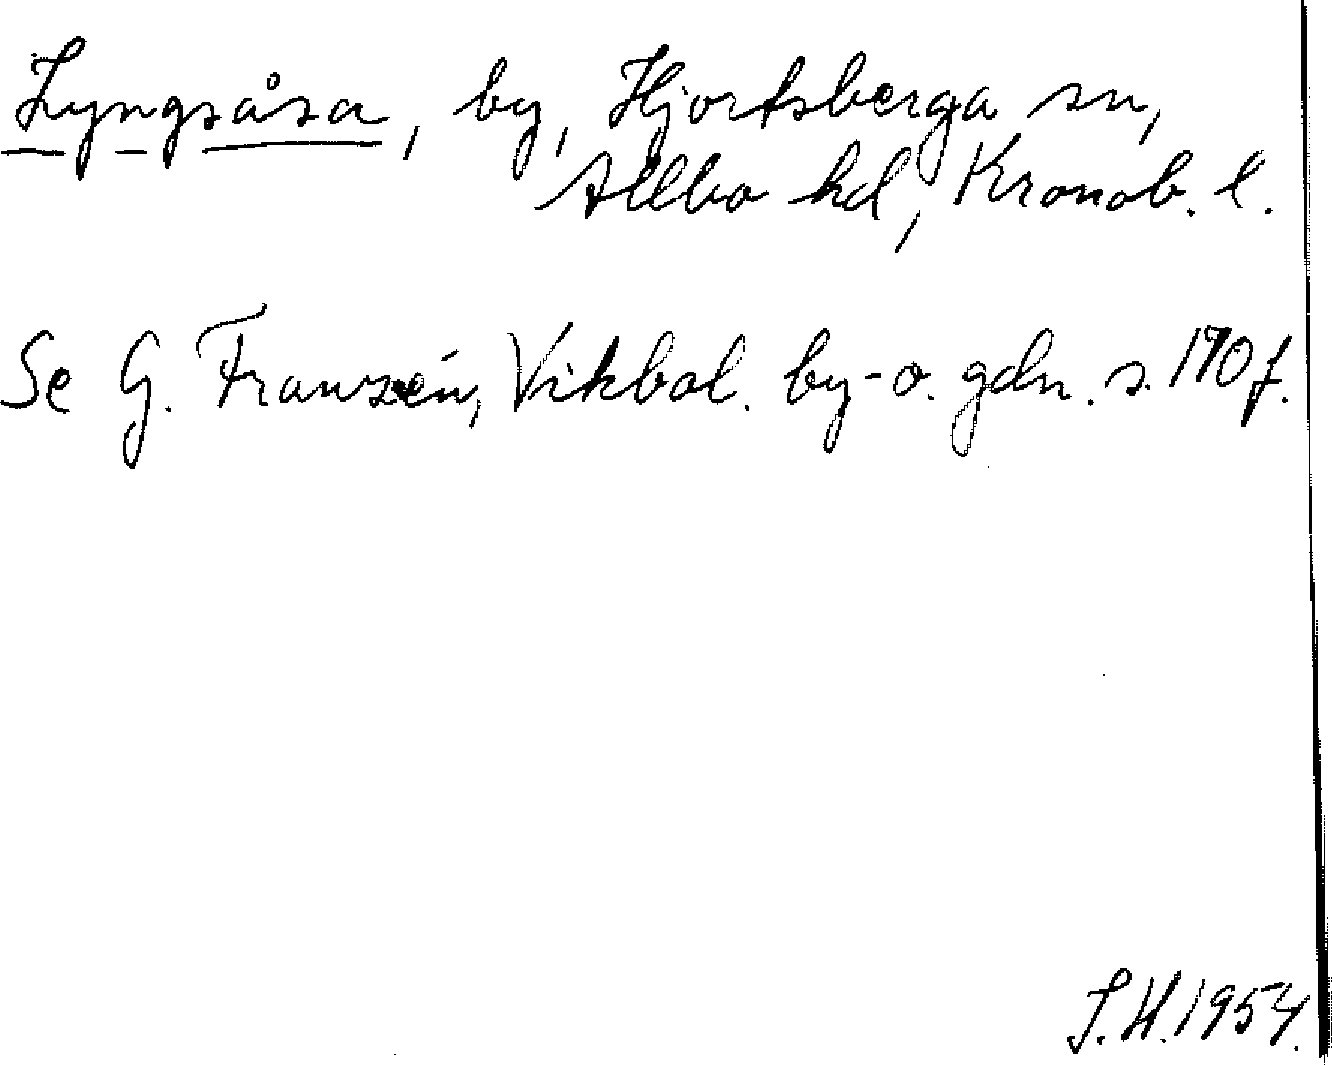 Lyngsåsa, by, Hjortsberga sn,
Allbo hd, Kronob. l.
Se G. Franzén, Vikbol. by- o. gdn. s. 190 f.
S.H. 1954.